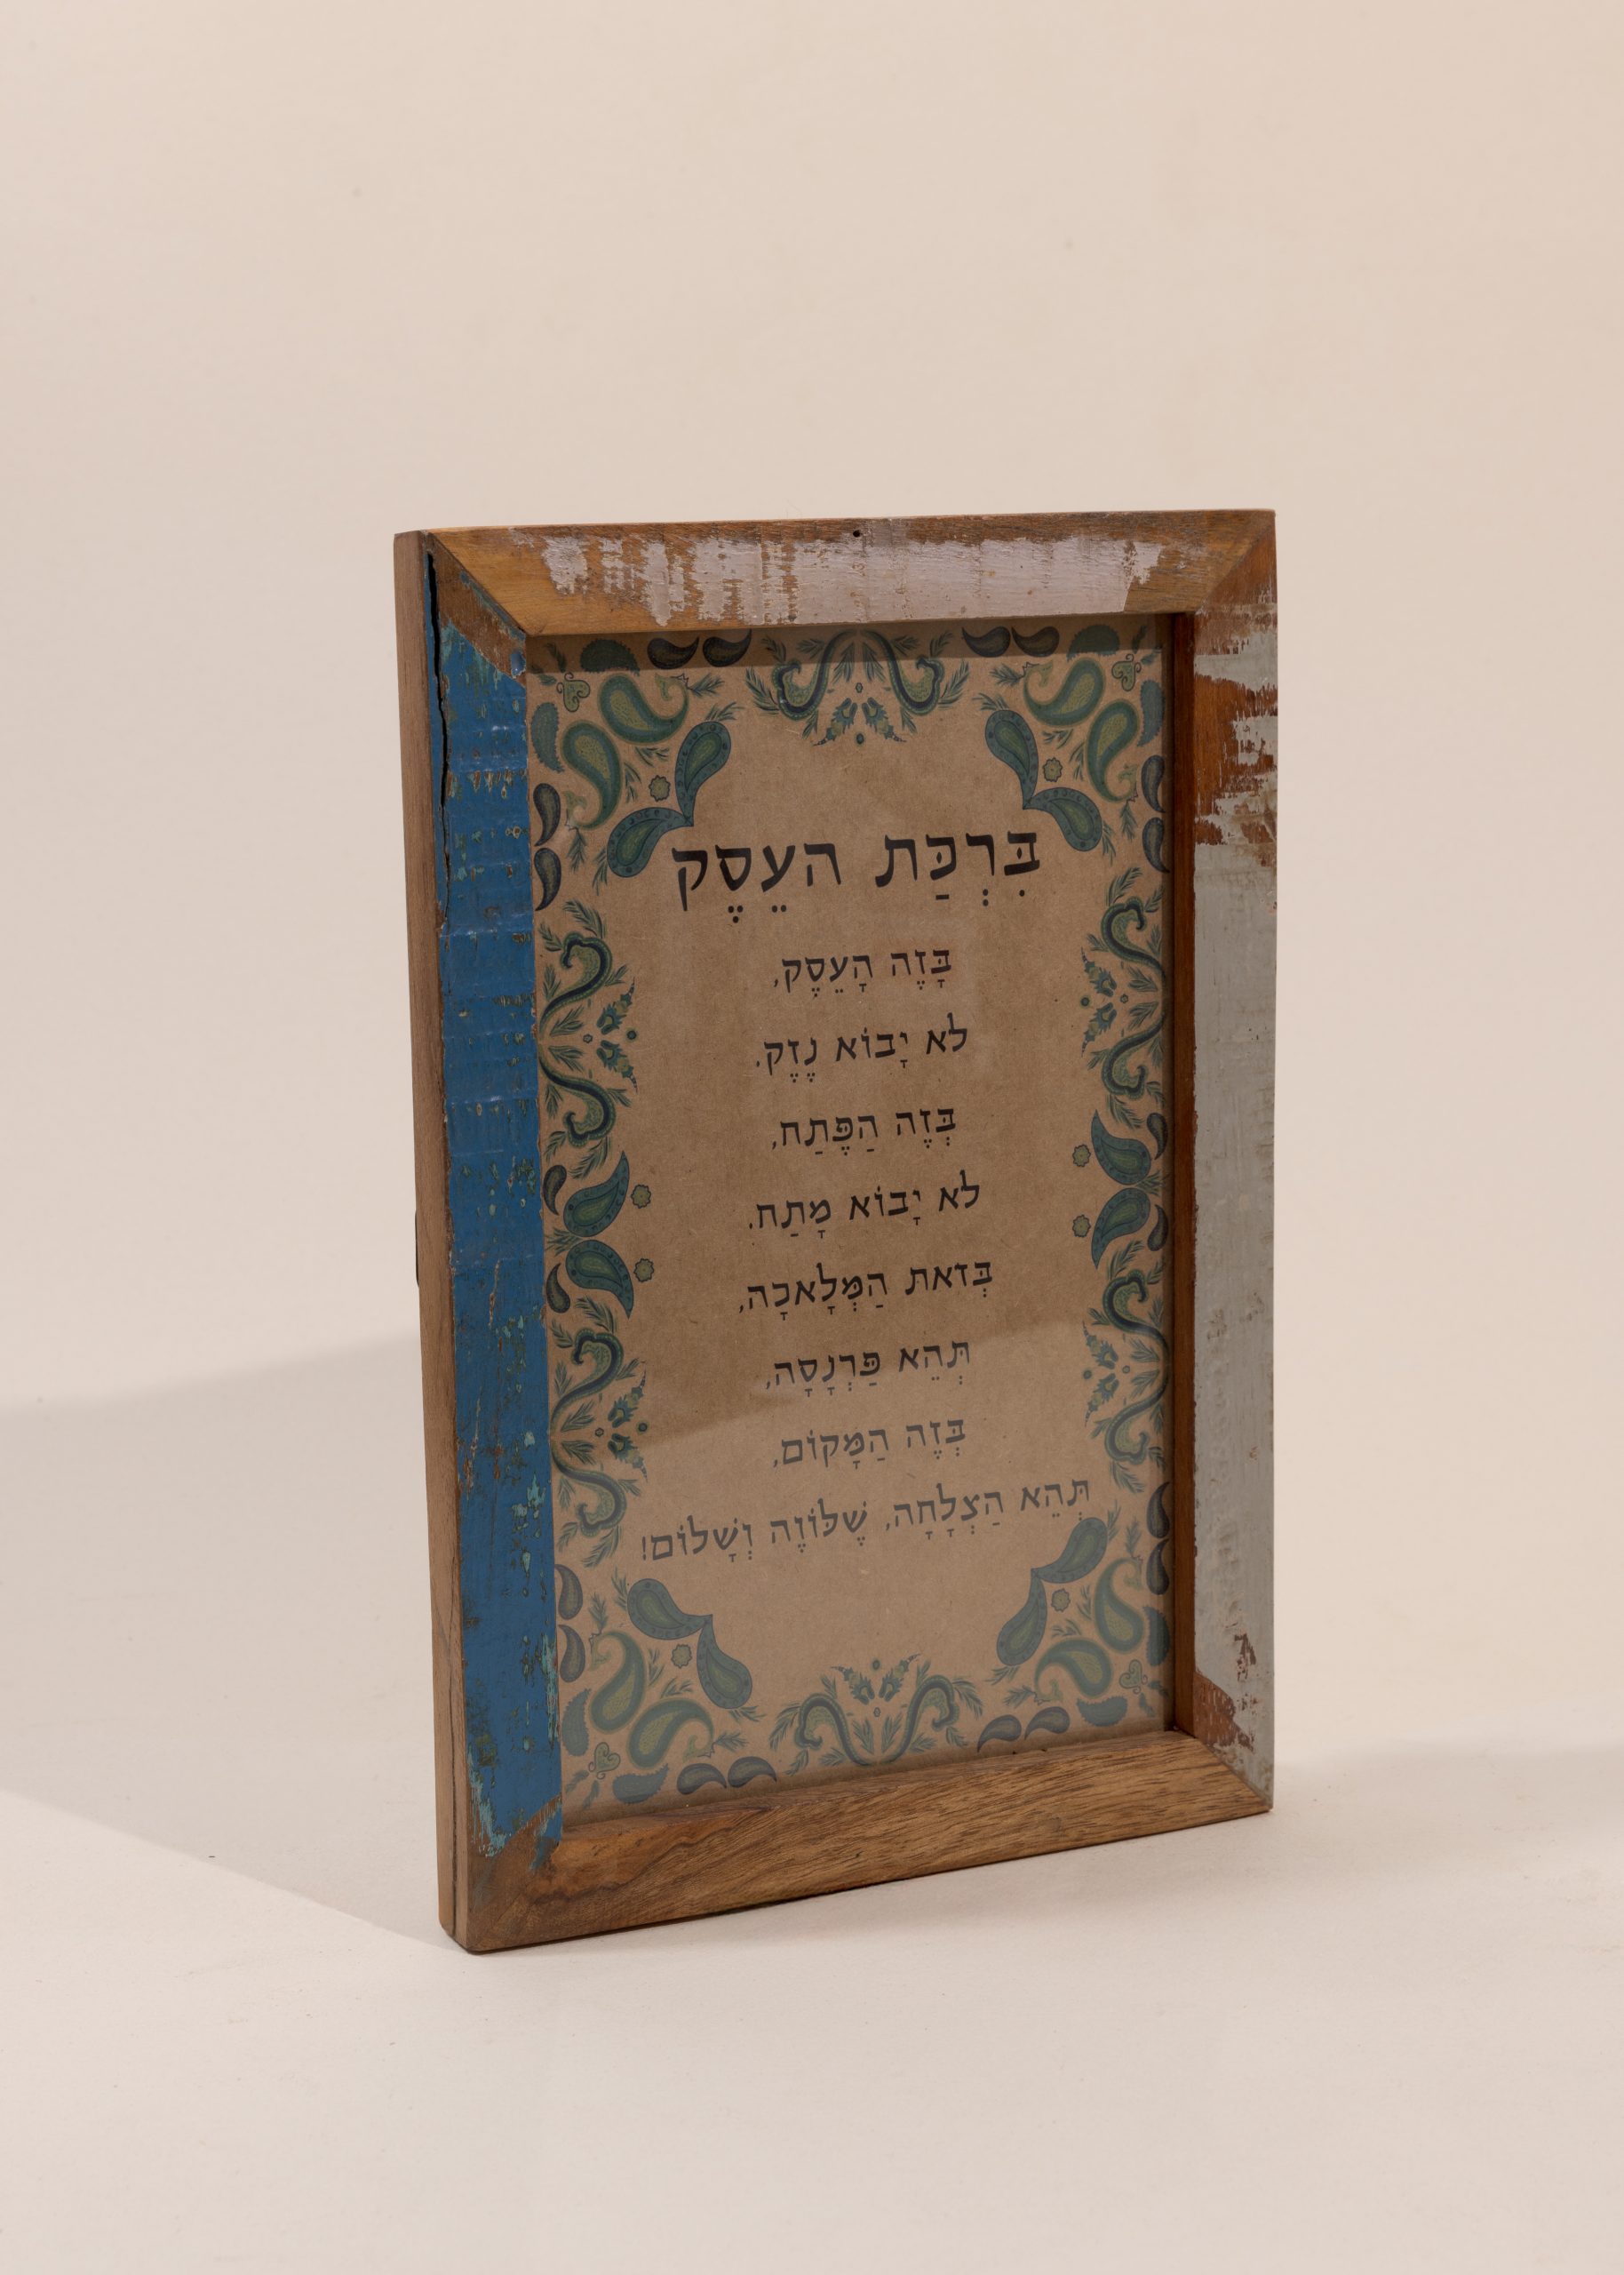 בִּרְכַּת העֵסֶק
בָּזֶה הָעֵסֶק,
לֹא יָבוֹא נֶזֶק.
בְּזֶה הַפֶּתַח,
לֹא יָבוֹא מָתַח.
בְּזֹאת הַמְּלָאכָה,
תְּהֵא פַּרְנָסָה,
בְּזֶה הַמָּקוֹם,
תְּהֵא הַצְלָחָה, שֶׁלּוֹוֶה וְשָׁלוֹם!